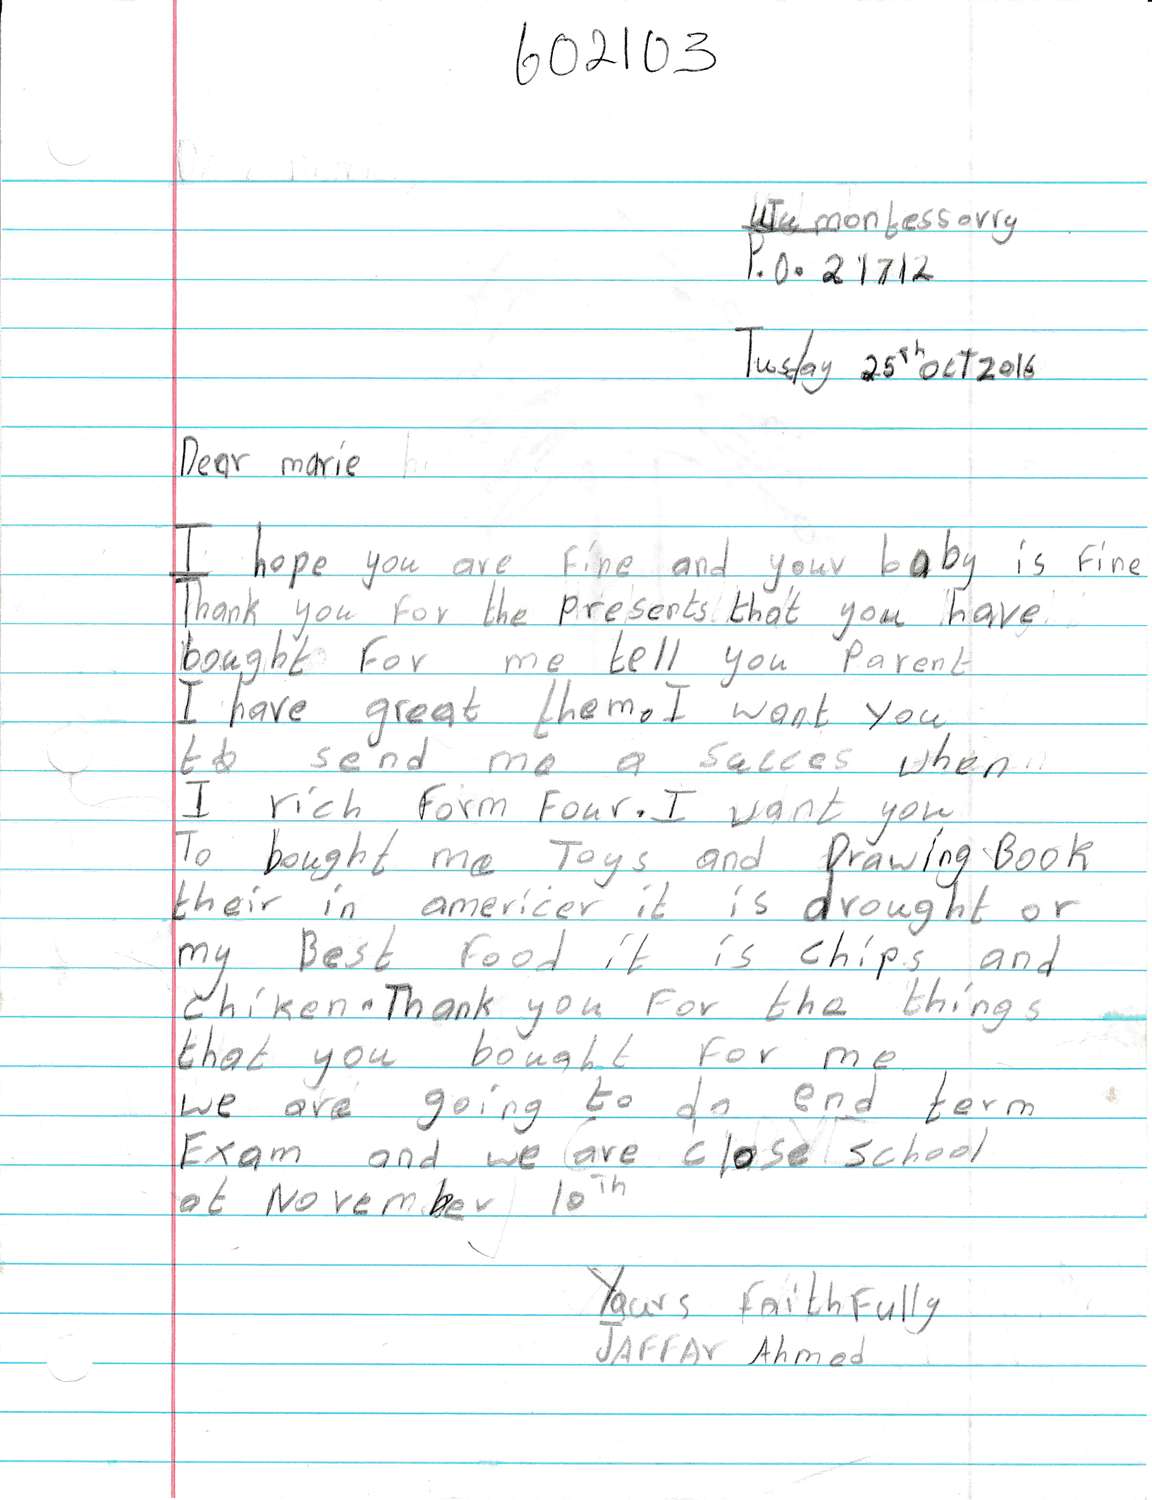 602103
Utu montessorry
P.O. 21712
Tusday 25Th OCT 2016
Dear marie
I hope you are Fine and your baby is Fine
Thank you For the Presents that you have
bought For me tell you Parent
I have great them. I want you
to send me a Succes when
I rich Form Four. I want you
To bought me Toys and Drawing Book
their in americer it is drought or
my Best Food it is chips and
chiken. Thank you For the things
that you bought For me
we are going to do end term
Exam and we are close school
at November 10Th
Yours FaithFully
JAFFAr Ahmed